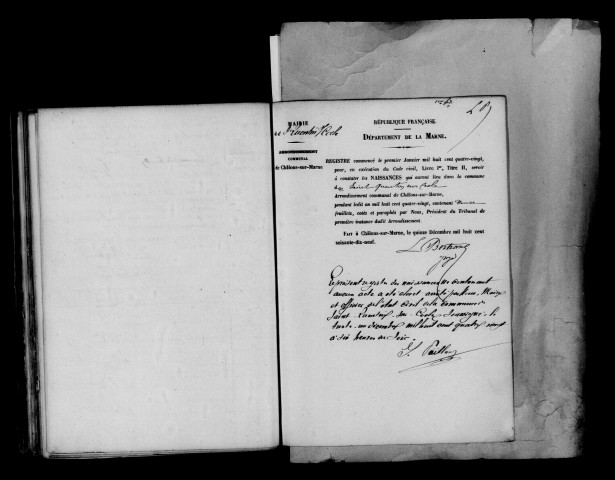 MAIRIE
RÉPUBLIQUE FRANÇAISE.
DÉPARTEMENT DE LA MARNE.
ARRONDISSEMENT
COMMUNAL
de Châlons-sur-Marne
REGISTRE commencé le premier Janvier mil huit cent quatre-vingt,
pour, en exécution du Code civil, Livre Ier, Titre II, servir
à constater les NAISSANCES qui auront lieu dans la commune
de Saint Quentin sur Coole
Arrondissement communal de Châlons-sur-Marne,
pendant ledit an mil huit cent quatre-vingt, contenant
feuillets, cotés et paraphés par Nous, Président du Tribunal de
première instance dudit Arrondissement.
FAIT à Châlons-sur-Marne, le quinze Décembre mil huit cent
soixante-dix-neuf.
Le présent registre des naissances ne contenant
aucun acte a été clos et arrêté par nous, Maire
et officier de l'état civil de la commune de
Saint Quentin sur Coole soussigné le
trente un décembre mil huit cent quatre vingt
à six heures du soir.